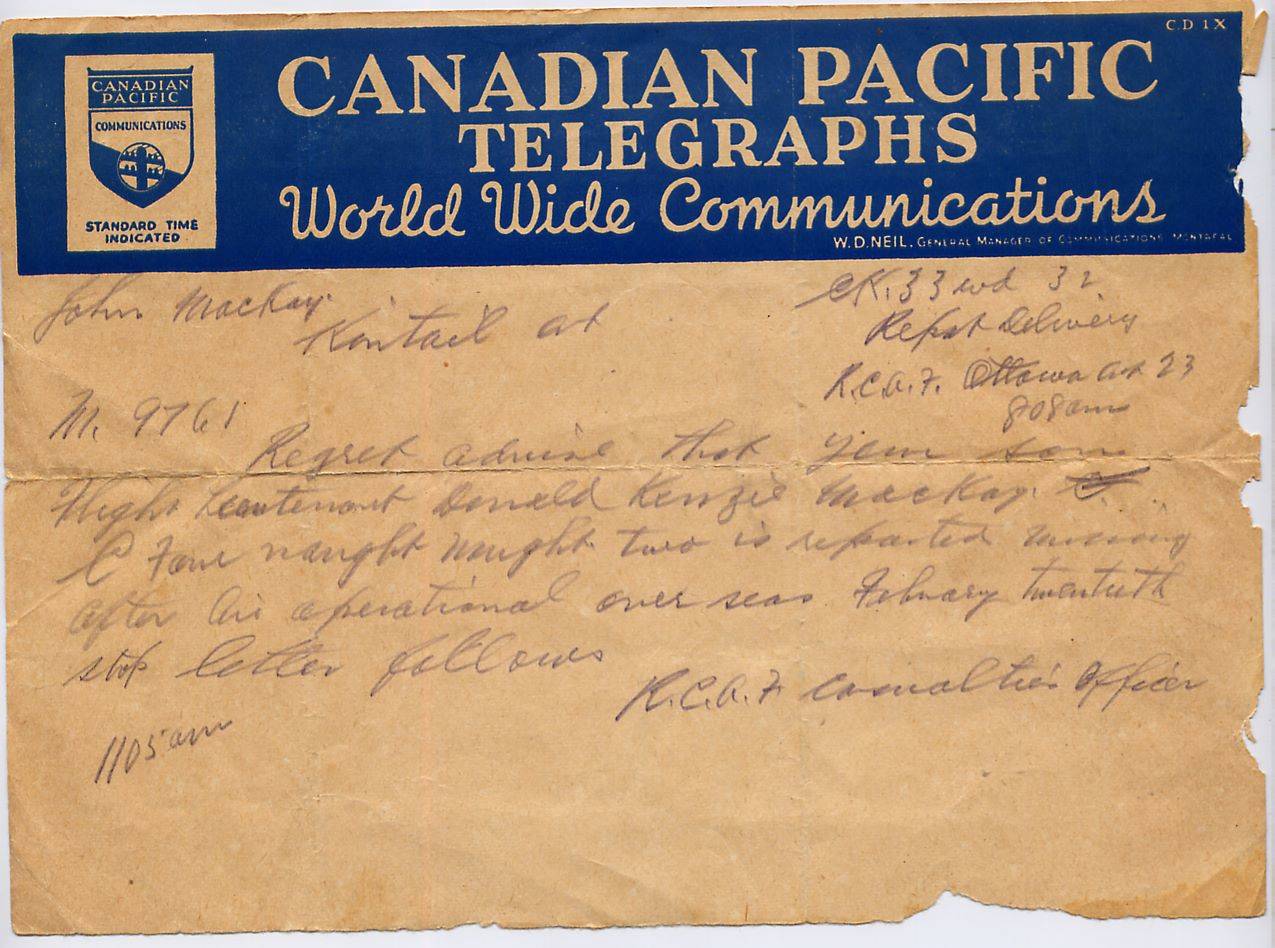 C.D. 1X
CANADIAN PACIFIC
TELEGRAPHS
World Wide Communications
W.D. NEIL, GENERAL MANAGER OF COMMUNICATIONS, MONTREAL
CANADIAN
PACIFIC
COMMUNICATIONS
STANDARD TIME
INDICATED
John MacKay
Kintail Ont
CK. 33 wd 32
Repot Delivery
R.C.A.F. Ottawa Ont 23
808am
M. 9761
Regret advise that your son
Flight Lieutenant Donald Kenzie MacKay
C Four naught naught two is reported missing
after air operational over seas February twentieth
stop letter follows
R.C.A.F Casualties Officer
1105am